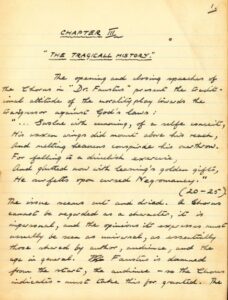 1
CHAPTER III
"THE TRAGICALL HISTORY."
The opening and closing speeches of
the Chorus in "Dr. Faustus" present the tradit-
ional attitude of the morality play towards the
transgressor against God's laws:
"... Swolne with cunning, of a selfe conceit,
His waxen wings did mount above his reach,
And melting heavens conspirde his overthrow.
For falling to a divelish exercise,
And glutted now with learning's golden gifts,
He surffets upon cursed Negromancy."
(20-25)
The issue seems cut and dried. A Chorus
cannot be regarded as a character, it is
impersonal, and the opinions it expresses must
usually be seen as universal, as essentially
those shared by author, audience, and the
age in general. Faustus is damned
from the start, the audience - so the Chorus
indicates - must take this for granted. The